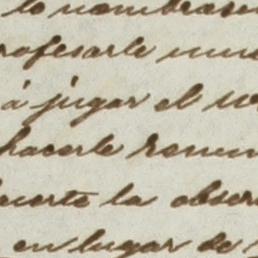 lo nombrase
profesarle mu
á jugar el
hacerle renun
puerto la obser
en lugar de